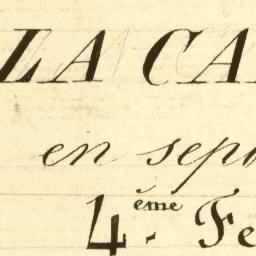 LA CA
en sep
4.ème Fe